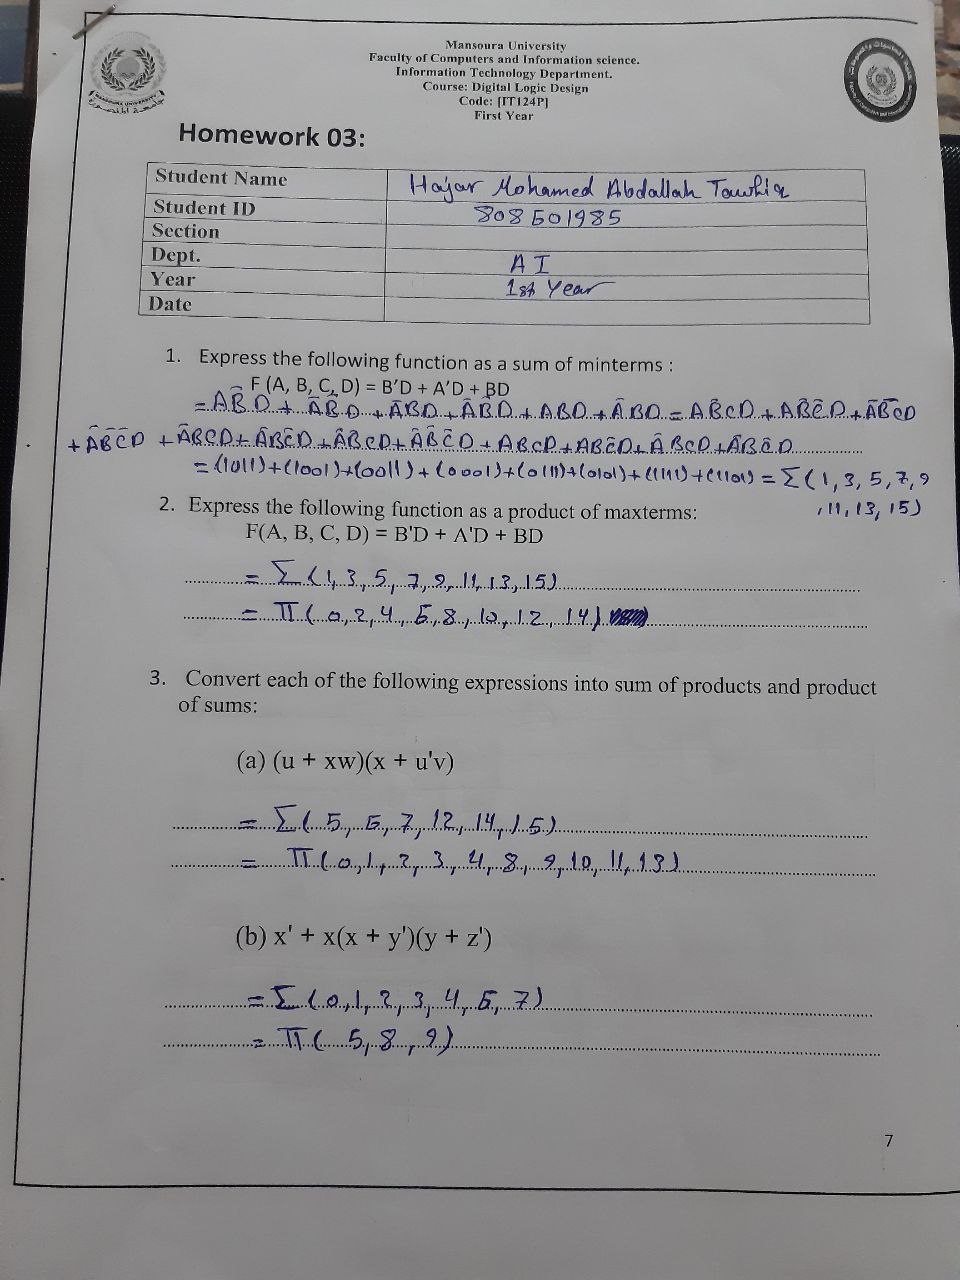 Mansoura University
Faculty of Computers and Information science.
Information Technology Department.
Course: Digital Logic Design
Code: [IT124P]
First Year
MANSOURA UNIVERSITY
Homework 03:
Student Name Hajar Mohamed Abdallah Tawfiq
Student ID 808501985
Section
Dept. AI
Year 1st Year
Date
1. Express the following function as a sum of minterms :
F (A, B, C, D) = B'D + A'D + BD
= AB̄D + ĀB̄D + ĀBD + ĀB̄D + ABD + ĀBD = AB̄CD + AB̄C̄D + ĀB̄CD
+ ĀB̄C̄D + ĀBCD + ĀBC̄D + ĀB̄CD + ĀB̄C̄D + ABCD + ABC̄D + ĀBCD + ĀBC̄D
= (1011) + (1001) + (0011) + (0001) + (0111) + (0101) + (1111) + (1101) = Σ(1, 3, 5, 7, 9
, 11, 13, 15)
2. Express the following function as a product of maxterms:
F(A, B, C, D) = B'D + A'D + BD
= Σ (1, 3, 5, 7, 9, 11, 13, 15)
= Π (0, 2, 4, 6, 8, 10, 12, 14)
3. Convert each of the following expressions into sum of products and product
of sums:
(a) (u + xw)(x + u'v)
= Σ (5, 6, 7, 12, 14, 15)
= Π (0, 1, 2, 3, 4, 8, 9, 10, 11, 13)
(b) x' + x(x + y')(y + z')
= Σ (0, 1, 2, 3, 4, 6, 7)
= Π (5, 8, 9)
7